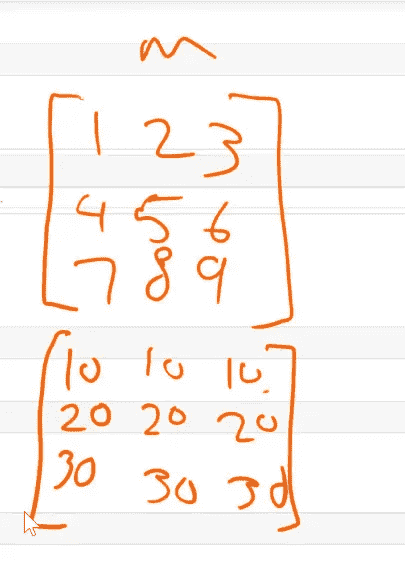 m
1 2 3
4 5 6
7 8 9
10 10 10.
20 20 20
30 30 30